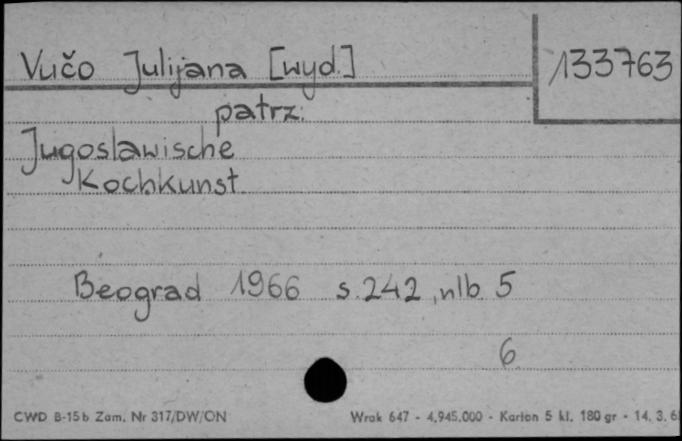 Vučo Julijana [wyd.] 133763
patrz:
Jugoslawische
Kochkunst
Beograd 1966 s. 242, nlb. 5
6
CWD B-15b Zam. Nr 317/DW/ON Wrak 647 - 4,945.000 - Karton 5 kl. 180 gr - 14. 3. 6